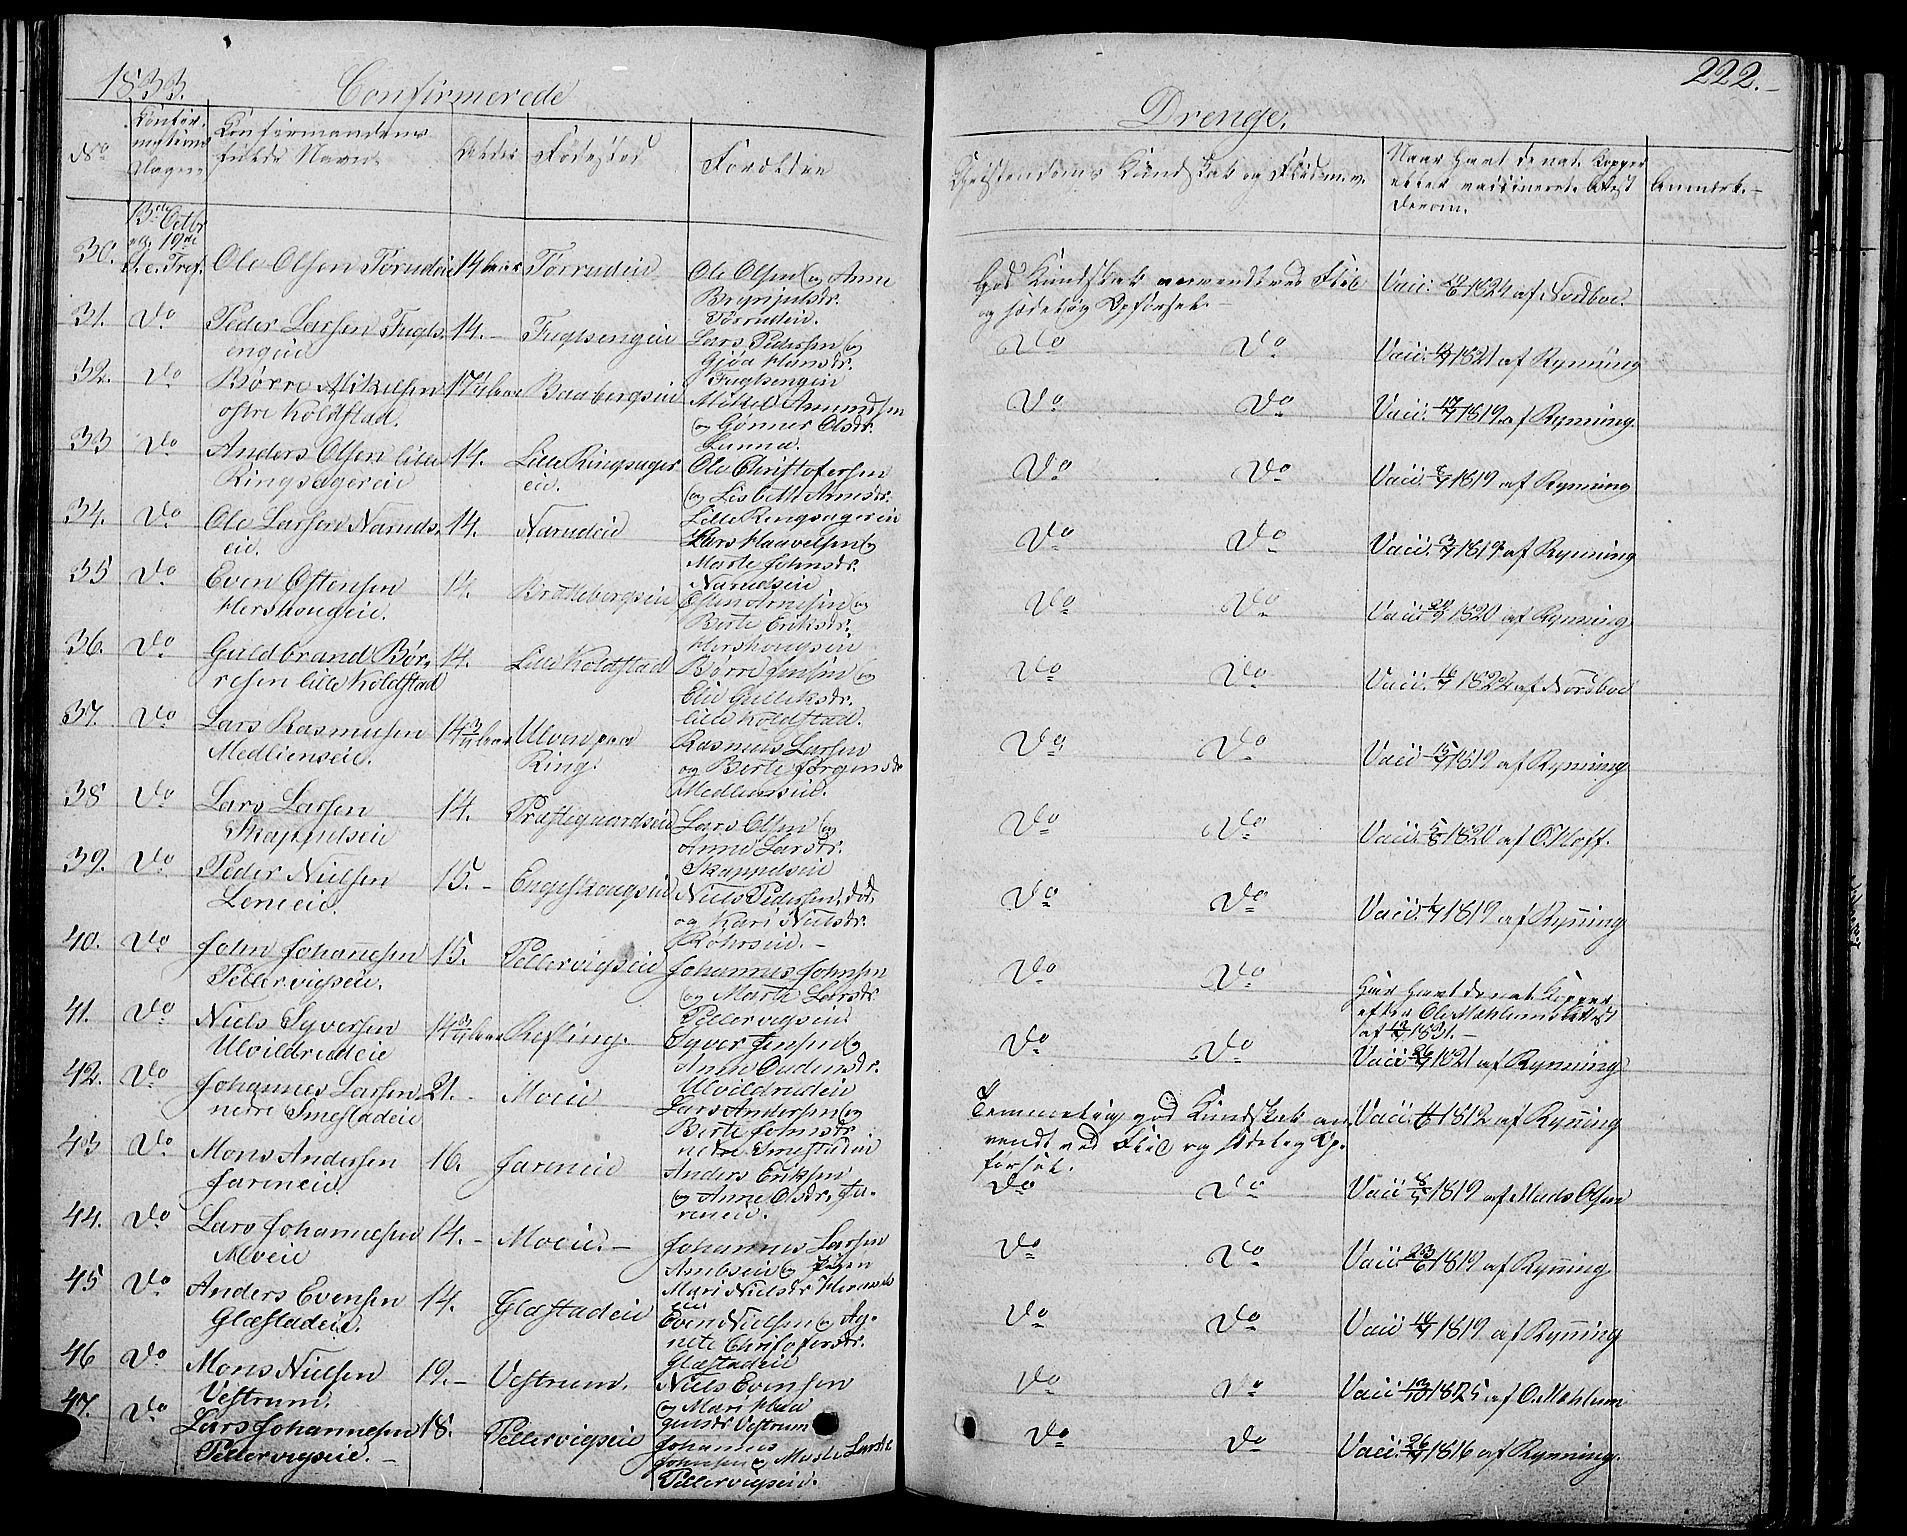 1833. Confirmerede
Drenge. 222.-
No Confirmations Dagen Confirmandens fulde Navn Alder Fødested Forældre Christendoms Kundskab og Flid m. v. Naar havt de nat. Kopper eller vaccineret. Attest derom. Anmerk.-
30. 13de Octbr 19de S. e. Tref. Ole Olsen Torudeie 14 Torrudeie Ole Olsen og Anne Brynjulsdr. Torrudeie. God Kundskab anvendt ved Flid og sædelig Opførsel.- Vacc. 1824 af Nordboe
31. Do Peder Larsen Fuglsengeie 14.- Fuglsengeie Lars Pedersen og Gjøa Hansdr. Fuglsengeie Do Do Vacc. 1821 af Rynning
32. Do Børre Mikelsen østre Koldstad. 17 Baabergseie Mikkel Amundsen og Gønner Olsdr. Lunna. Do Do Vacc. 17/7 1819 af Rynning.
33 Do Anders Olsen lille Ringsagereie 14. Lille Ringsagereie. Ole Christofersen og Lisbeth Arnesdr. Lille Ringsagereie Do Do Vacc. 1819 af Rynning
34. Do Ole Larsen Narudseie. 14. Narudeie Lars Haavelsen og Marte Johnsdr. Narudseie Do Do Vacc. 1819 af Rynning
35 Do Even Ostensen Hershougeie. 14. Brattebergseie Osten Arnesen og Berte Eriksdr. Hershougseie Do Do Vacc. 1820 af Rynning
36. Do Guldbrand Børresen lille Koldstad 14. Lille Koldstad Børre Jensen og Elie Gulliksdr. lille Koldstad. Do Do Vacc. 1822 af Norsboe
37. Do Lars Rasmusen Medlienseie. 14 3/4 Ulven paa Ring. Rasmus Larsen og Berte Jørgensdr Medlienseie. Do Do Vacc 15/7 1819 af Rynning
38 Do Lars Larsen Skappelseie 14. Præstegaardseie Lars Olsen og Anne Larsdr. Skappelseie Do Do Vacc. 1820 af O. Hoff.
39. Do Peder Nielsen Leneeie. 15.- Engeshougseie Niels Pedersen, død, og Kari Nielsdr. Røhrseie.- Do Do Vacc. 1819 af Rynning
40. Do John Johannesen Pellervigseie. 15. Pellervigseie Johannes Johnsen og Marte Larsdr. Pellervigseie. Do Do Har havt de nat. Kopper efter Ole Mæhlums Attest af 1831.-
41. Do Niels Syversen Ulvildrudeie 14 3/4 Refling. Syver Jensen og Anne Oudensdr. Ulvildrudeie Do Do Vacc 26/7 1821 af Rynning
42. Do Johannes Larsen nedre Smestadeie 21.- Moeie Lars Andersen og Berte Johnsdr. nedre Smestadeie Temmelig god Kundskab anvendt ved Flid og sædelig Opførsel. Vacc. 1812 af Rynning
43 Do Mons Andersen Fareneie. 16. Fareneie Anders Eriksen og Anne Olsdr. Fareneie. Do Do Vacc 1819 af Mads Olsen
44. Do Lars Johannesen Moeie 14.- Moeie.- Johannes Larsen og Pigen Mari Nielsdr Do Do Vacc. 23/6 1819 af Rynning
45 Do Anders Evensen Glæstadeie. 14. Glæstadeie Even Nielsen og Agnete Christofersdr. Glæstadeie Do Do Vacc 1819 af Rynning
46 Do Mons Nielsen Vestrum. 19.- Vestrum. Niels Evensen og Mari Haagensdr Vestrum Do Do Vacc 13/10 1825 af O. Mæhlum
47. Do Lars Johannesen Pellervigseie.- 18. Pellervigseie Johannes Johnsen og Marte Larsdr Pellervigseie. Do Do Vacc. 26/7 1816 af Rynning.